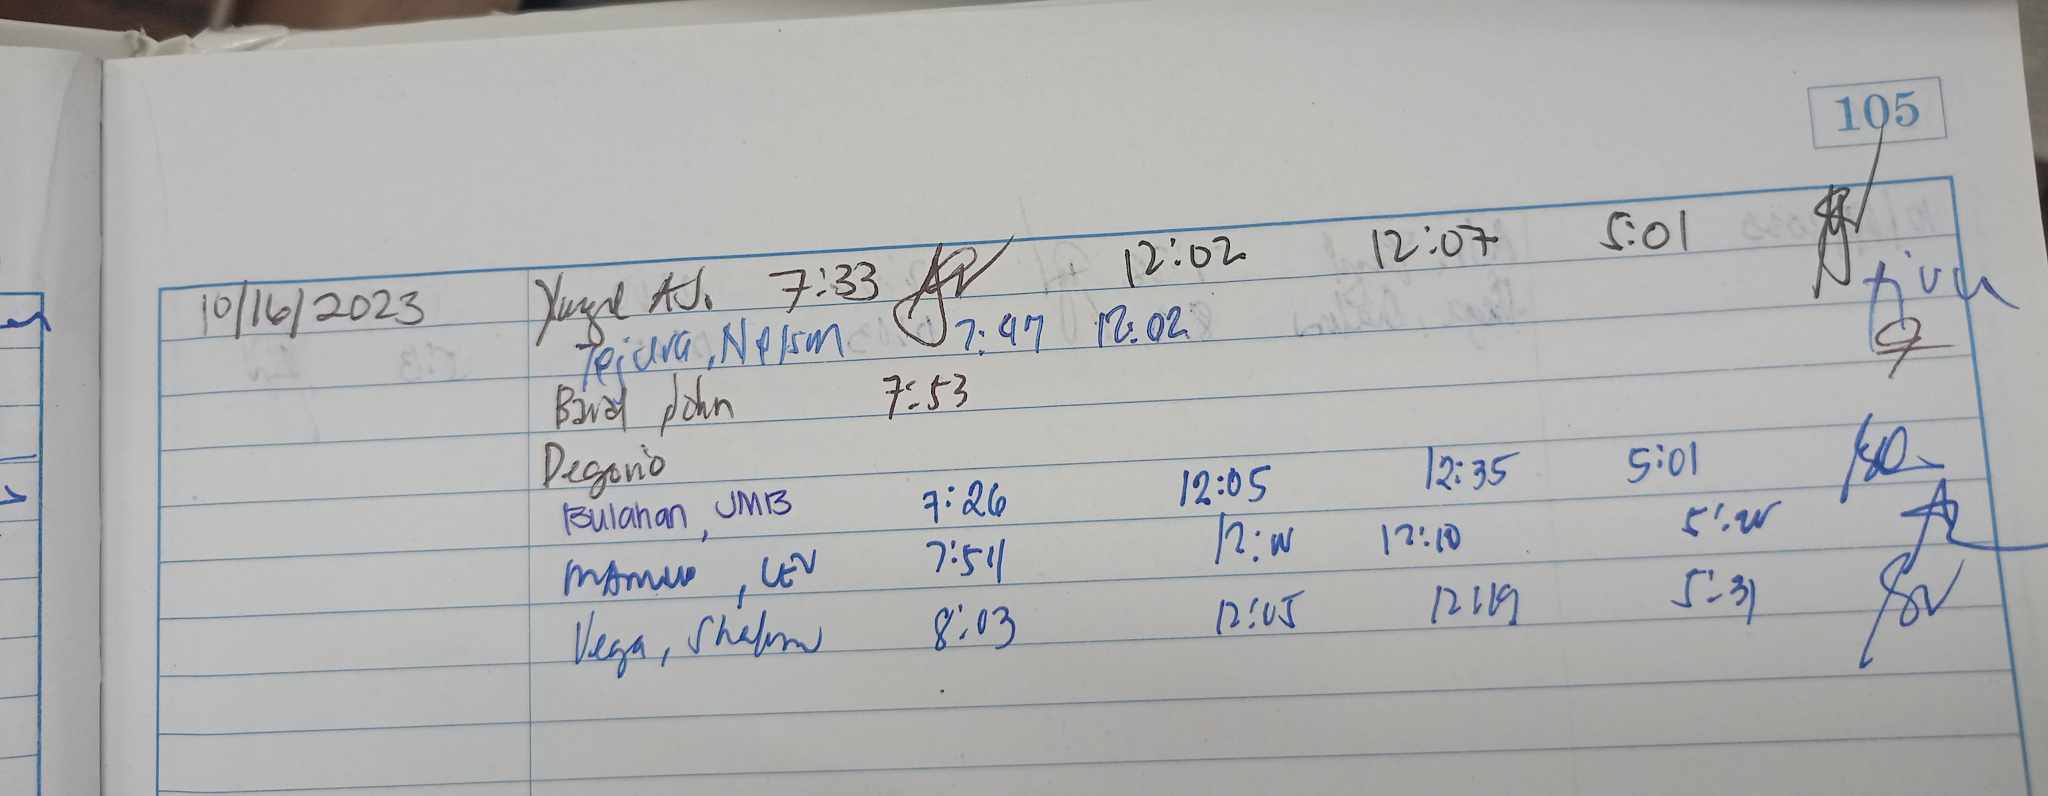 105
10/16/2023 A.J. 7:33 12:02 12:07 5:01
Tejura, Nelson 7:47 12:02
John 7:53
Degorio
Bulahan, JMB 7:26 12:05 12:35 5:01
7:51 12:10
Vega, 8:03 12:05 12:19 5:31